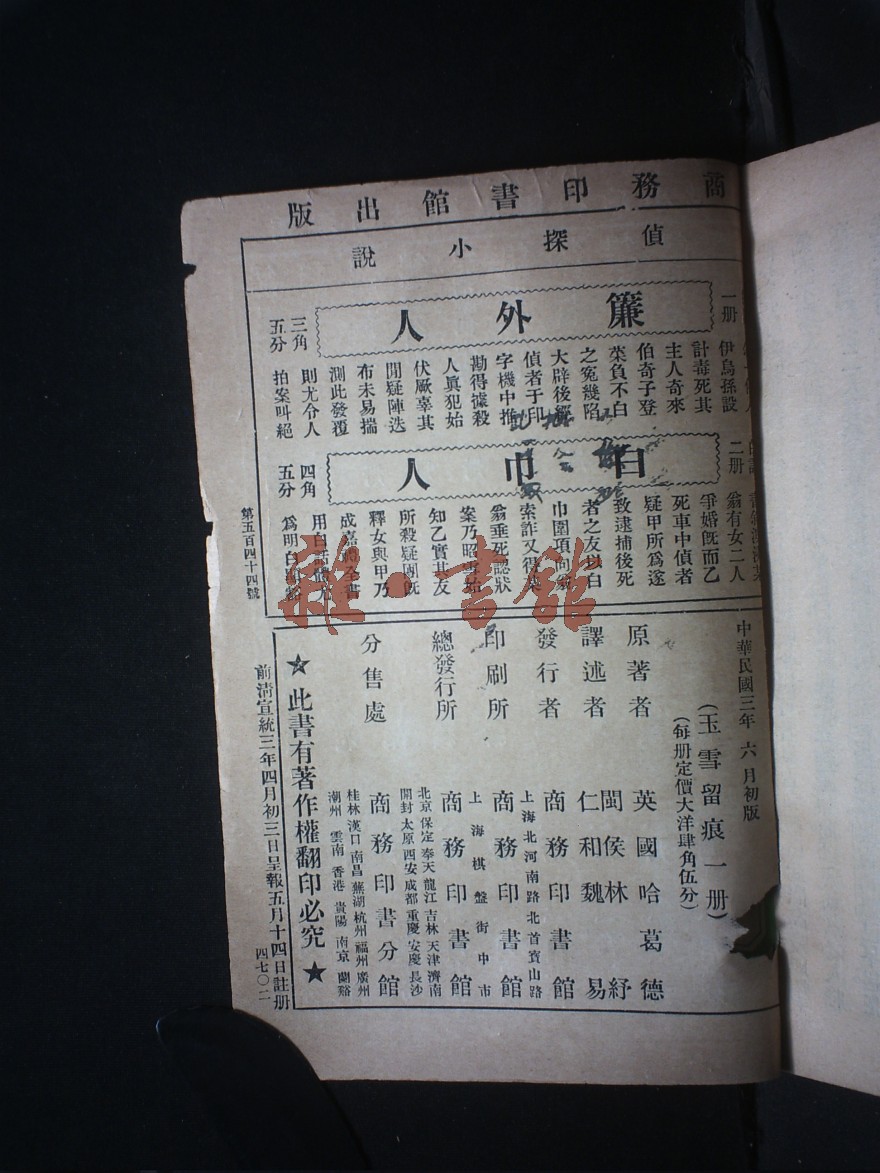 商務印書館出版
偵探小說
簾外人
一册
三角
五分
伊烏孫設
計毒死其
主人奇來
伯奇子登
萊負不白
之冤幾陷
大辟後經
偵者于印
字機中推
勘得據殺
人眞犯始
伏厥辜其
間疑陣迭
布未易揣
測此發覆
則尤令人
拍案叫絕
白巾人
二册
四角
五分
翁有女二人
爭婚旣而乙
死車中偵者
疑甲所爲遂
致逮捕後死
者之友以白
巾圍項向翁
索詐又得
翁垂死認狀
案乃昭雪始
知乙實其友
所殺疑團旣
釋女與甲乃
成嘉禮全書
用白話
爲明白
第五百四十四號
中華民國三年六月初版
(玉雪留痕一册)
(每册定價大洋肆角伍分)
原著者 英國哈葛德
譯述者 閩侯林紓
仁和魏易
發行者 商務印書館
上海北河南路北首寶山路
印刷所 商務印書館
上海棋盤街中市
總發行所 商務印書館
北京 保定 奉天 龍江 吉林 天津 濟南
開封 太原 西安 成都 重慶 安慶 長沙
分售處 商務印書分館
桂林 漢口 南昌 蕪湖 杭州 福州 廣州
潮州 雲南 香港 貴陽 南京 蘭谿
★此書有著作權翻印必究★
前清宣統三年四月初三日呈報五月十四日註册
四七〇二
雜·書館